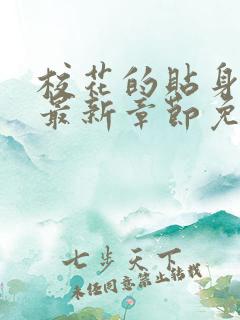 校花的贴身
最新章节免
七步天下
未经同意禁止转载